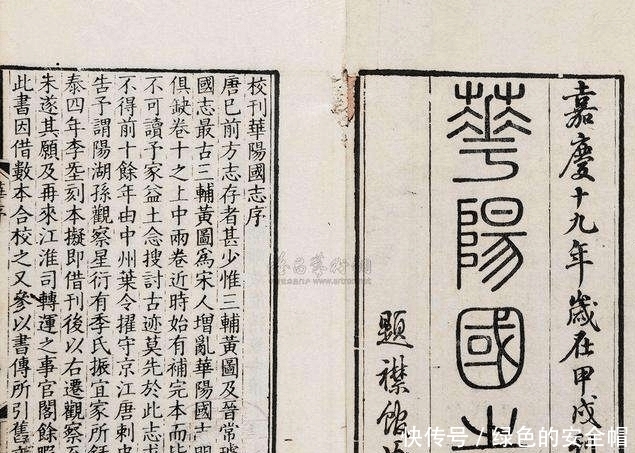 嘉慶十九年歲在甲戌
華陽國
題襟館
校刊華陽國志序
唐已前方志存者甚少惟三輔黃圖及晉常璩
國志最古三輔黃圖爲宋人增亂華陽國志明
俱缺卷十之上中兩卷近時始有補完本而皆
不可讀予家益土念搜討古迹莫先於此志求
不得前十餘年由中州葉令擢守京江唐刺史
告予謂陽湖孫觀察星衍有季氏振宜家所
泰四年李刻本擬即借刊後以右遷觀察
未遂其願及再來江淮司轉運之事官閣餘暇
此書因借數本合校之又參以書傳所引舊
序
快传号／绿色的安全帽